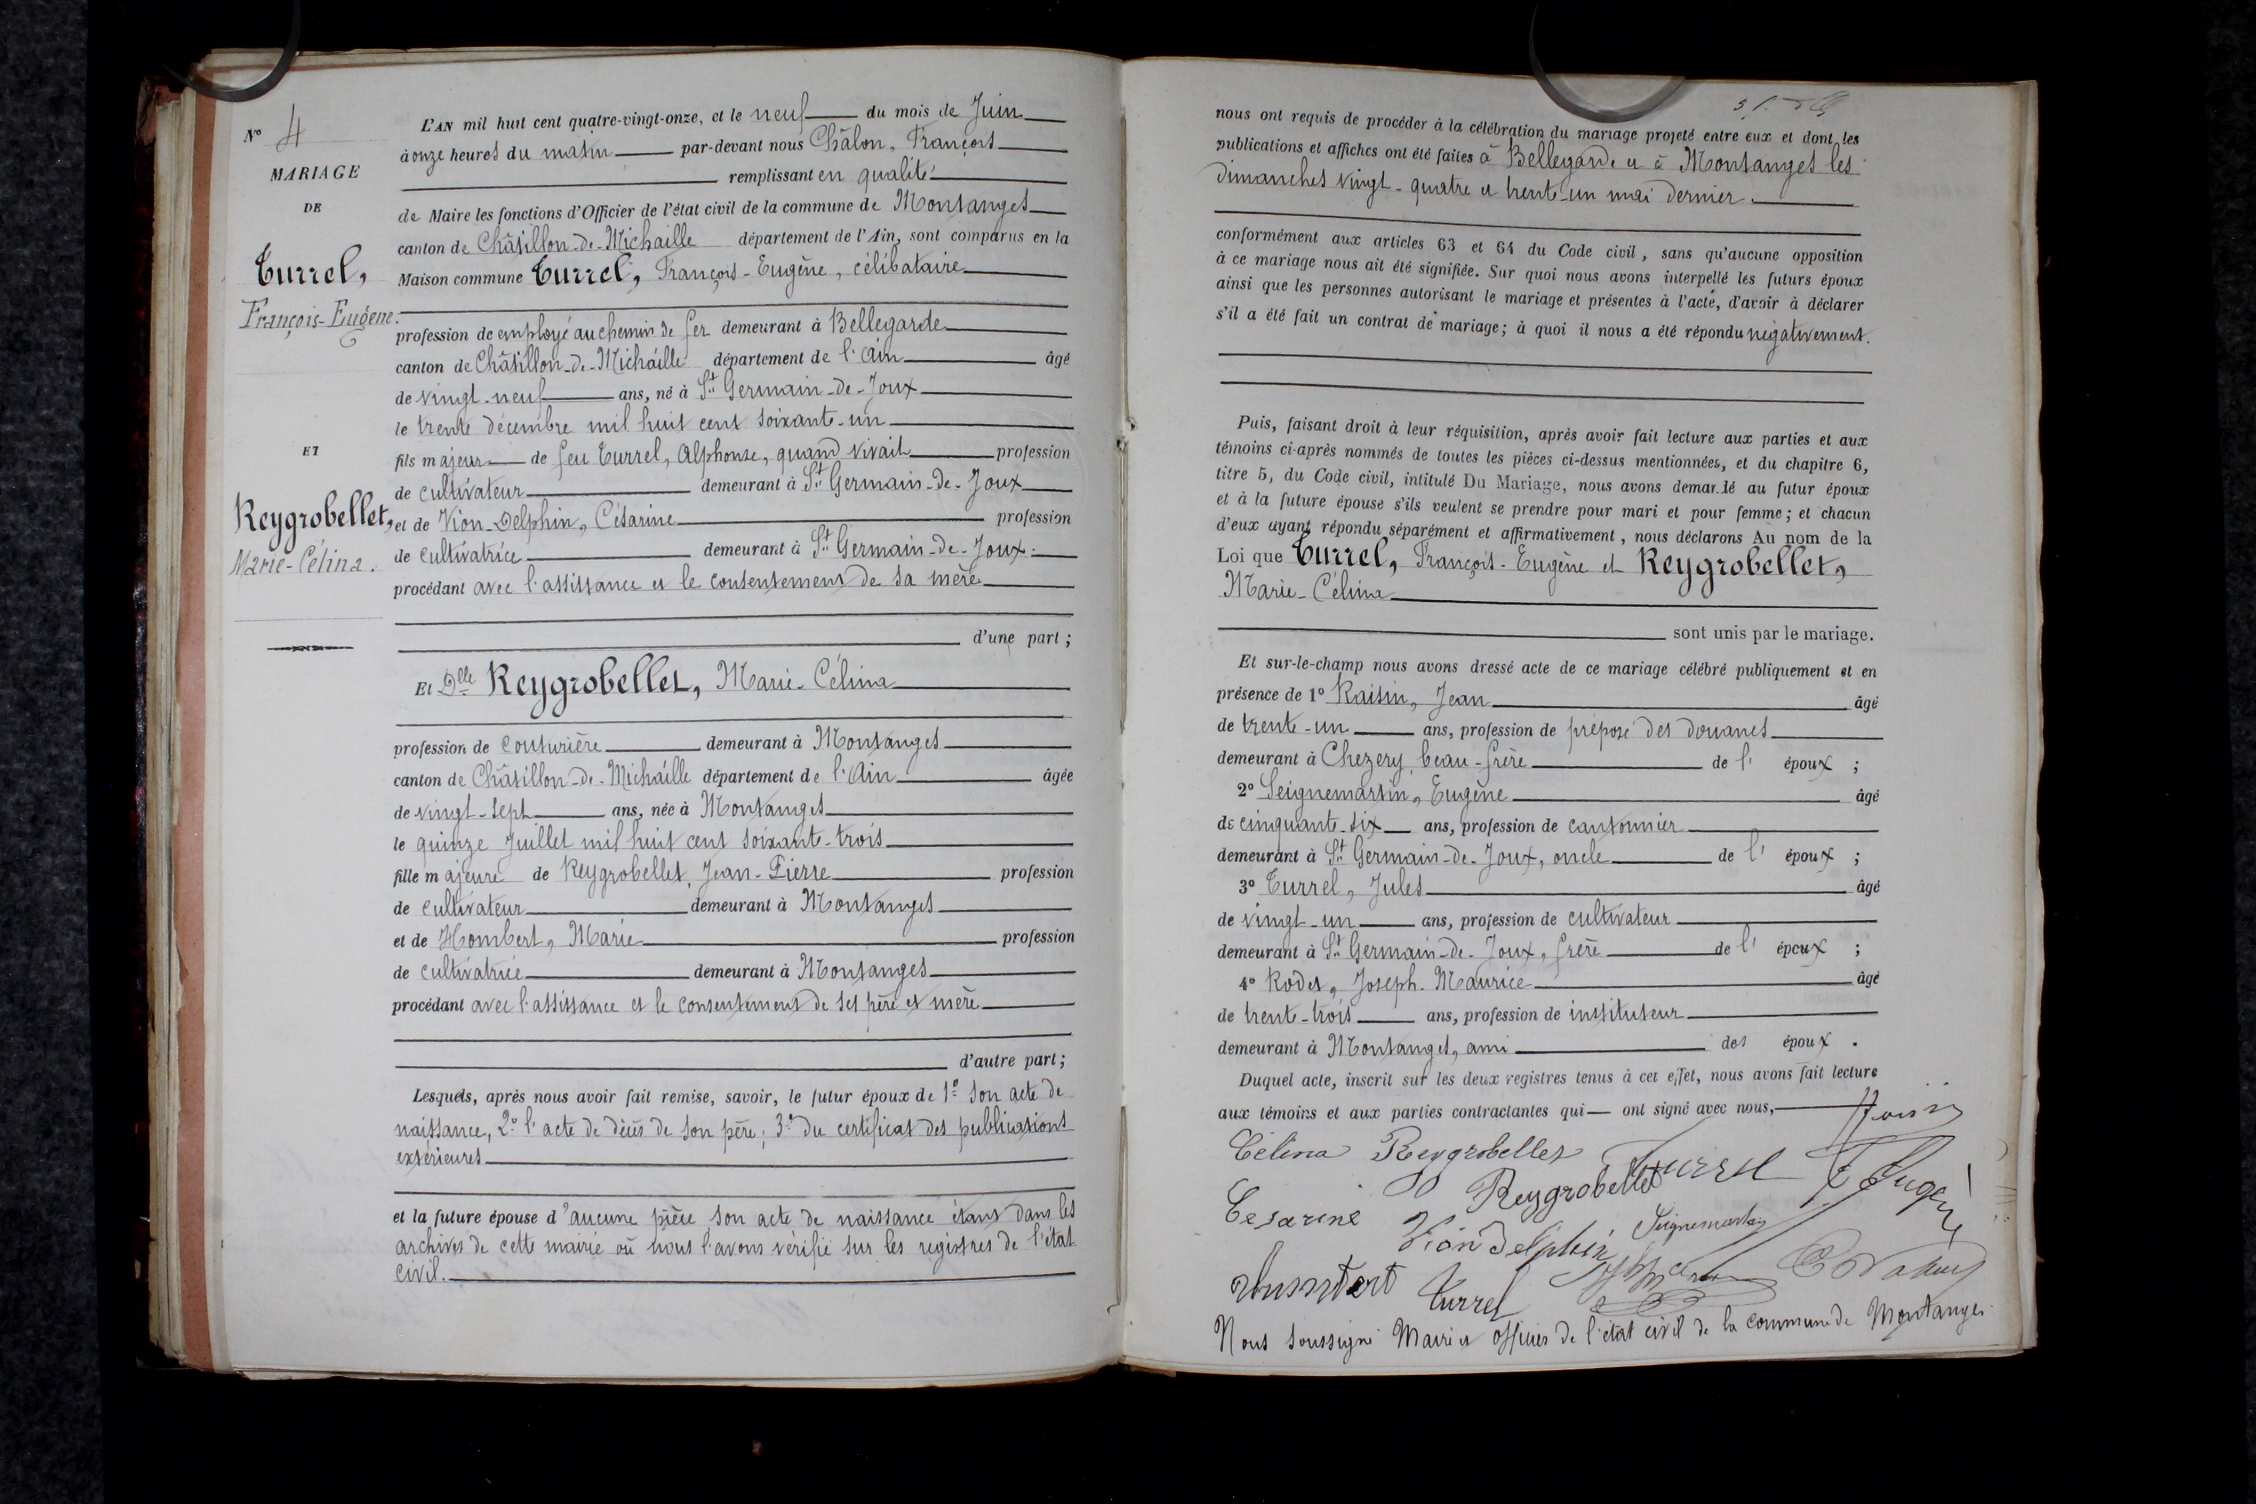 N° 4
MARIAGE
DE
Turrel,
François-Eugène.
ET
Reygrobellet,
Marie-Célina.
L'AN mil huit cent quatre-vingt-onze, et le neuf du mois de Juin
à onze heures du matin par-devant nous Châlon, François
remplissant en qualité
de Maire les fonctions d'Officier de l'état civil de la commune de Montanges
canton de Châtillon-de-Michaille département de l'Ain, sont comparus en la
Maison commune Turrel, François-Eugène, célibataire
profession de employé au chemin de fer demeurant à Bellegarde
canton de Châtillon-de-Michaille département de l'Ain âgé
de vingt-neuf ans, né à St Germain-de-Joux
le trente décembre mil huit cent soixante-un
fils majeur de feu Turrel, Alphonse, quand vivait profession
de cultivateur demeurant à St Germain-de-Joux
et de Vion-Delphin, Césarine profession
de cultivatrice demeurant à St Germain-de-Joux.
procédant avec l'assistance et le consentement de sa mère
d'une part ;
Et Dlle Reygrobellet, Marie-Célina
profession de couturière demeurant à Montanges
canton de Châtillon-de-Michaille département de l'Ain âgée
de vingt-sept ans, née à Montanges
le quinze Juillet mil huit cent soixante-trois
fille majeure de Reygrobellet, Jean-Pierre profession
de cultivateur demeurant à Montanges
et de Hombert, Marie profession
de cultivatrice demeurant à Montanges
procédant avec l'assistance et le consentement de ses père et mère
d'autre part ;
Lesquels, après nous avoir fait remise, savoir, le futur époux de 1° son acte de
naissance, 2° l'acte de décès de son père ; 3° du certificat des publications
extérieures
et la future épouse d'aucune pièce son acte de naissance étant dans les
archives de cette mairie où nous l'avons vérifié sur les registres de l'état
civil.
nous ont requis de procéder à la célébration du mariage projeté entre eux et dont les
publications et affiches ont été faites à Bellegarde et à Montanges les
dimanches vingt-quatre et trente-un mai dernier.
conformément aux articles 63 et 64 du Code civil, sans qu'aucune opposition
à ce mariage nous ait été signifiée. Sur quoi nous avons interpellé les futurs époux
ainsi que les personnes autorisant le mariage et présentes à l'acte, d'avoir à déclarer
s'il a été fait un contrat de mariage ; à quoi il nous a été répondu négativement.
Puis, faisant droit à leur réquisition, après avoir fait lecture aux parties et aux
témoins ci-après nommés de toutes les pièces ci-dessus mentionnées, et du chapitre 6,
titre 5, du Code civil, intitulé Du Mariage, nous avons demandé au futur époux
et à la future épouse s'ils veulent se prendre pour mari et pour femme ; et chacun
d'eux ayant répondu séparément et affirmativement, nous déclarons Au nom de la
Loi que Turrel, François-Eugène et Reygrobellet,
Marie-Célina
sont unis par le mariage.
Et sur-le-champ nous avons dressé acte de ce mariage célébré publiquement et en
présence de 1° Raisin, Jean âgé
de trente-un ans, profession de préposé des douanes
demeurant à Chezery, beau-frère de l'époux ;
2° Seignemartin, Eugène âgé
de cinquante-six ans, profession de cantonnier
demeurant à St Germain-de-Joux, oncle de l'époux ;
3° Turrel, Jules âgé
de vingt-un ans, profession de cultivateur
demeurant à St Germain-de-Joux, frère de l'époux ;
4° Rodet, Joseph-Maurice âgé
de trente-trois ans, profession de instituteur
demeurant à Montanges, ami des époux.
Duquel acte, inscrit sur les deux registres tenus à cet effet, nous avons fait lecture
aux témoins et aux parties contractantes qui ont signé avec nous,
Raisin
Célina Reygrobellet Turrel F Eugène
Reygrobellet
Cesarine Vion Delphin Seignemartin
Humbert Turrel
Nous soussigné Maire et officier de l'état civil de la commune de Montanges